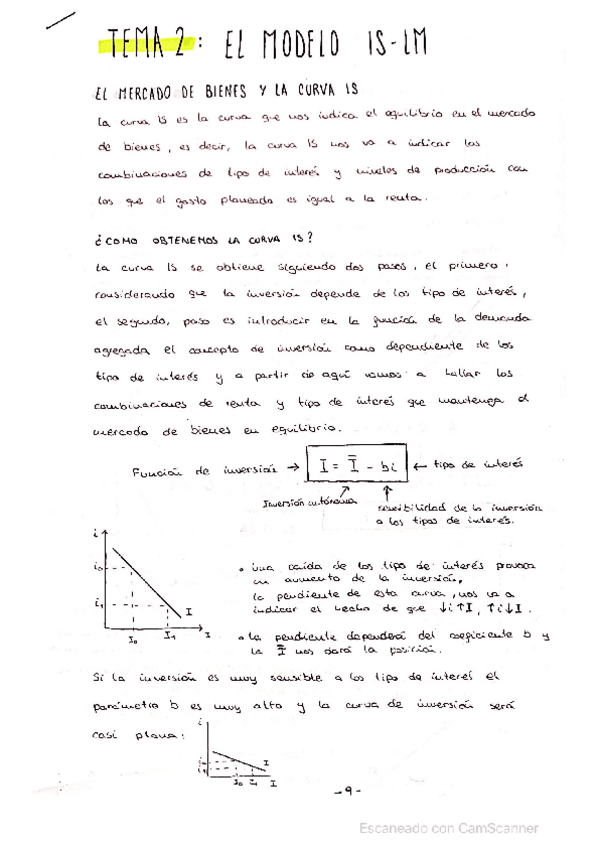 TEMA 2: EL MODELO IS-LM
EL MERCADO DE BIENES Y LA CURVA IS
La curva IS es la curva que nos indica el equilibrio en el mercado
de bienes, es decir, la curva IS nos va a indicar las
combinaciones de tipo de interés y niveles de producción con
los que el gasto planeado es igual a la renta.
¿COMO OBTENEMOS LA CURVA IS?
La curva IS se obtiene siguiendo dos pasos, el primero,
considerando que la inversión depende de los tipo de interés,
el segundo, paso es introducir en la función de la demanda
agregada el concepto de inversión como dependiente de los
tipo de interés y a partir de aquí vamos a hallar las
combinaciones de renta y tipo de interés que mantenga el
mercado de bienes en equilibrio.
Función de inversión → I = Ī - bi ← tipo de interés
Inversión autónoma
sensibilidad de la inversión
a los tipos de interés.
i
i₀
i₁
I
I₀ I₁ I
• una caída de los tipo de interés provoca
un aumento de la inversión,
la pendiente de esta curva, nos va a
indicar el hecho de que ↓i↑I, ↑i↓I.
• la pendiente dependerá del coeficiente b y
la Ī nos dará la posición.
Si la inversión es muy sensible a los tipo de interés el
parámetro b es muy alto y la curva de inversión será
casi plana:
i
i₀
i₁
I
I₀ I₁ I
-9-
Escaneado con CamScanner